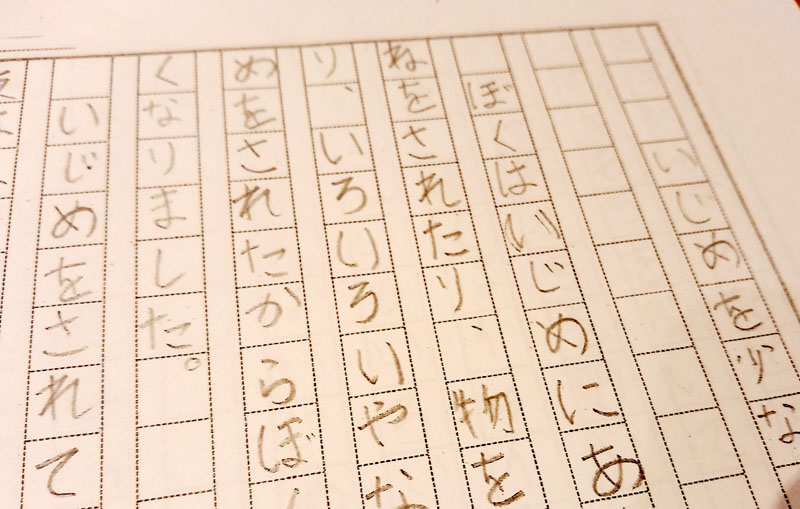 いじめを少な
ぼくはいじめにあ
ねをされたり、物を
り、いろいろいやな
めをされたからぼく
くなりました。
いじめをされて